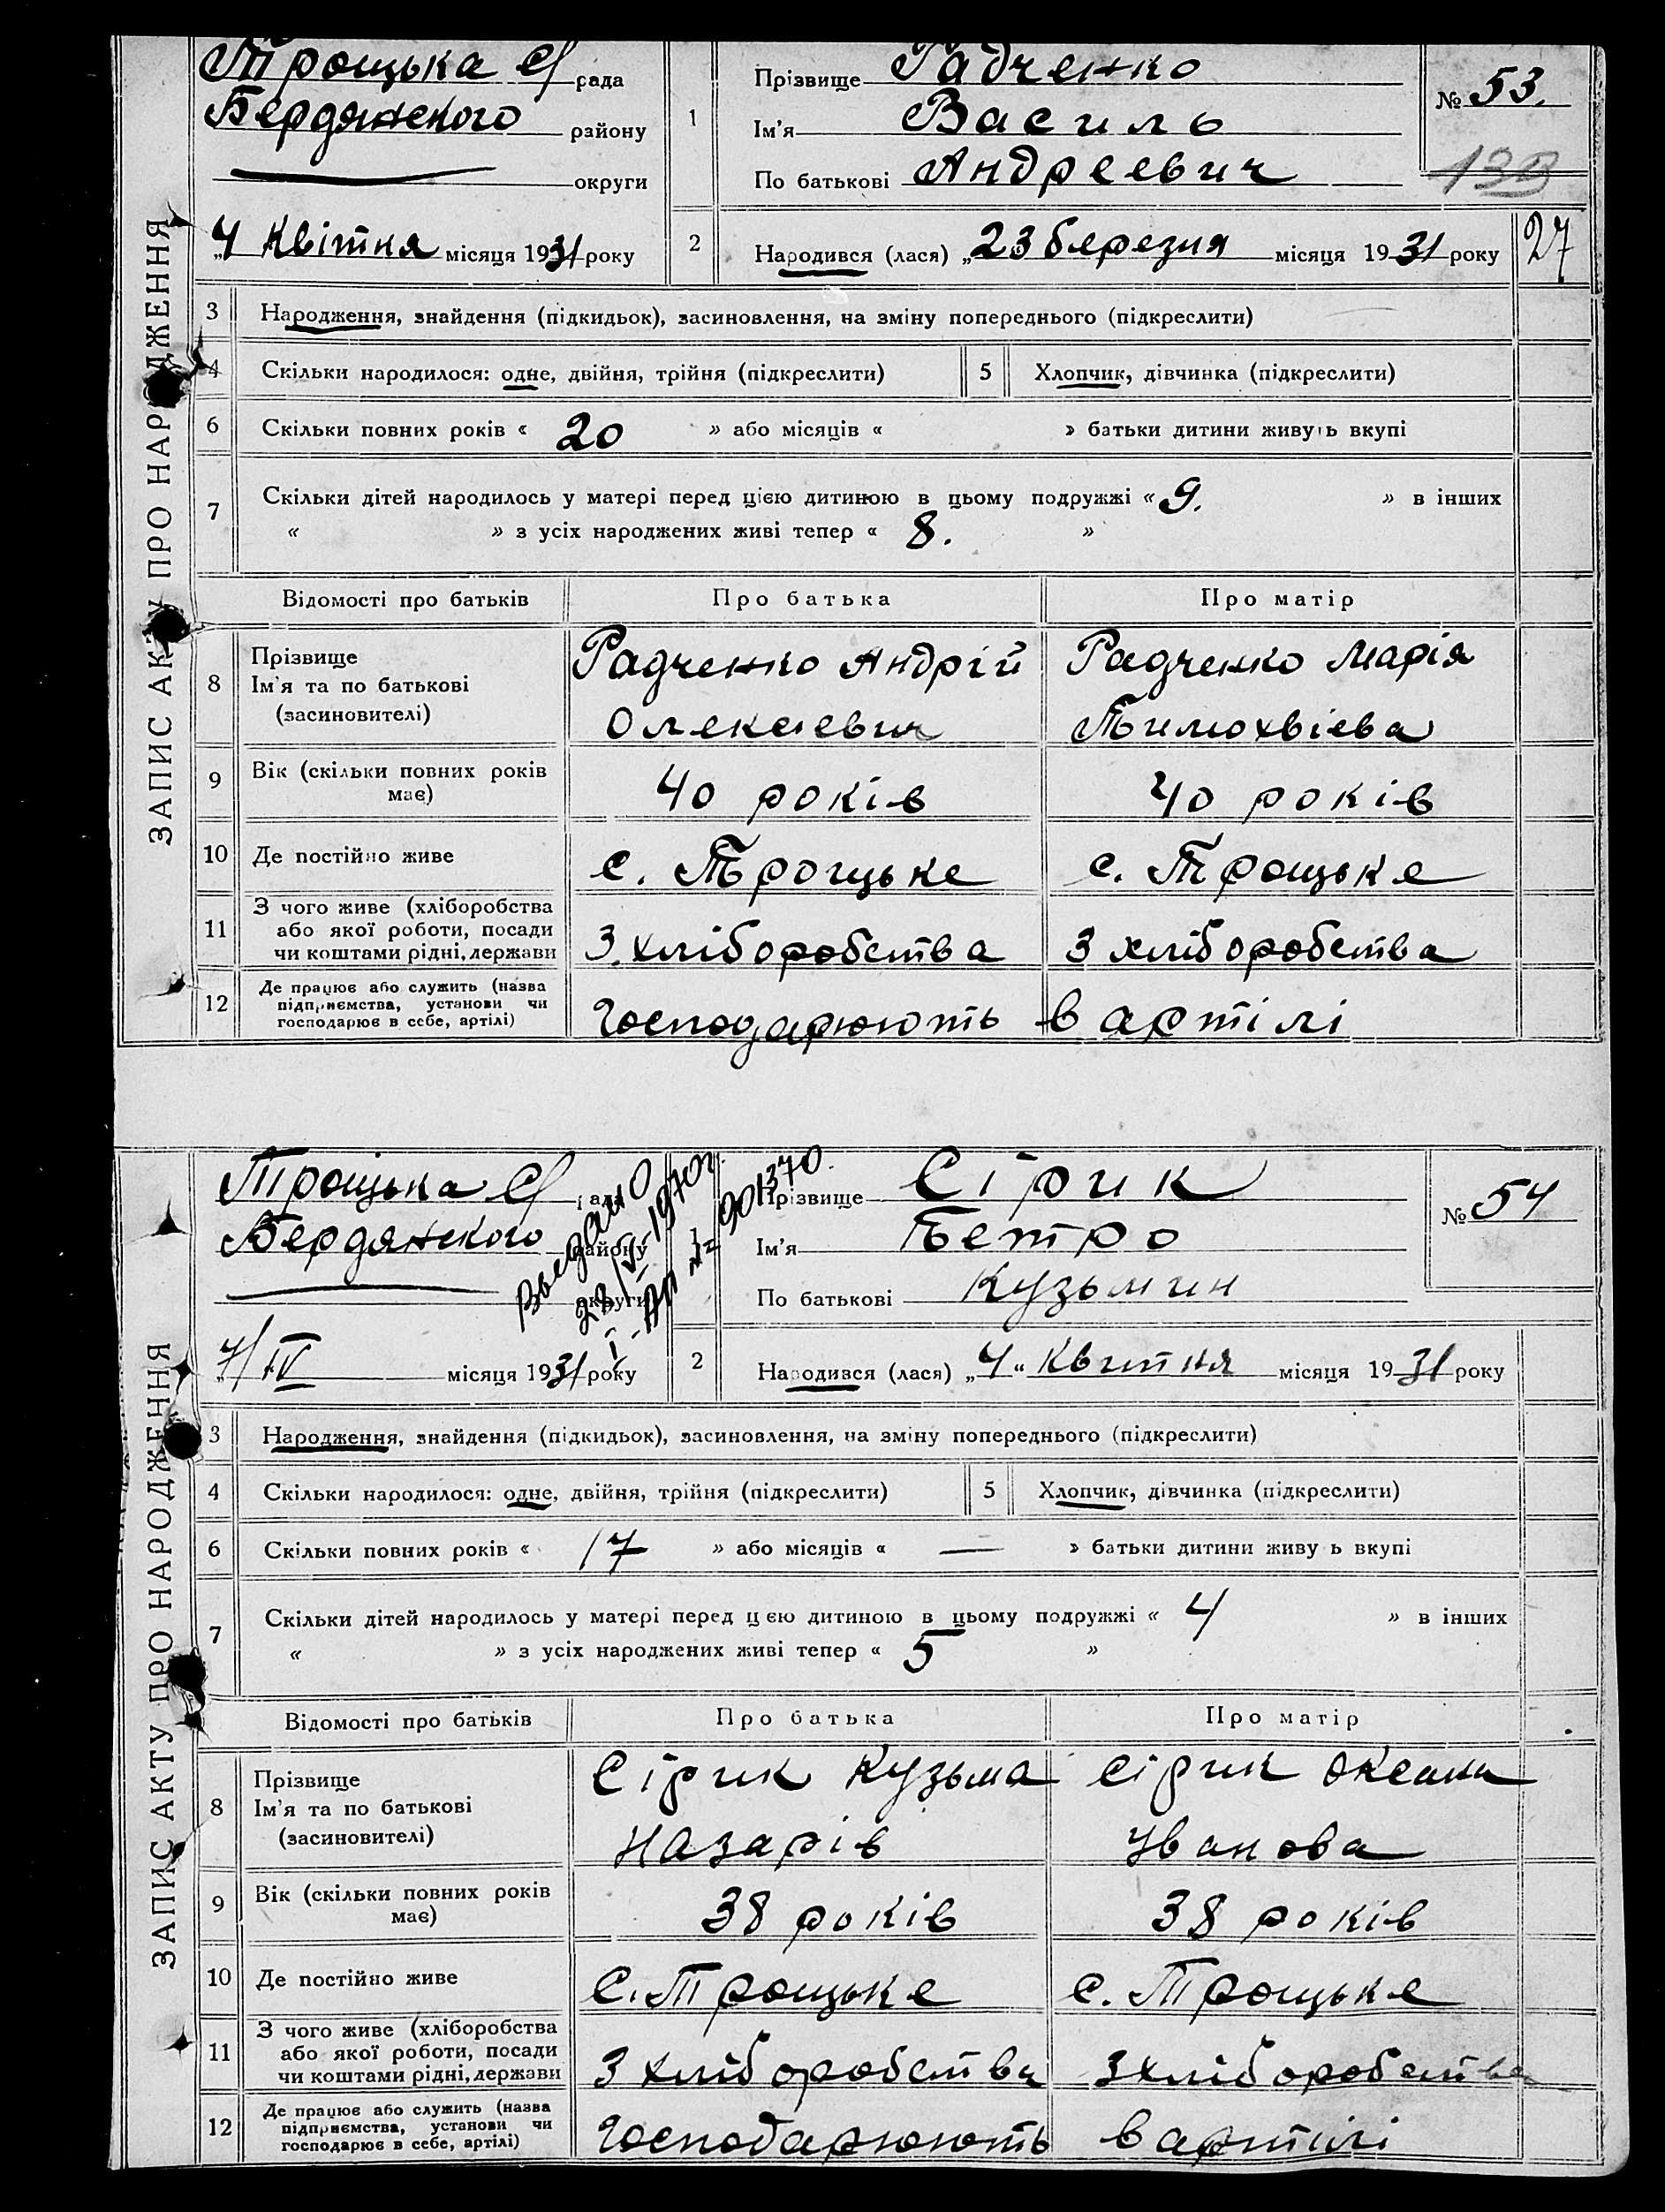 ЗАПИС АКТУ ПРО НАРОДЖЕННЯ
Троцька с/рада
Бердянського району
округи
„4 Квітня місяця 1931 року
1
Прізвище Радченко
Ім'я Василь
По батькові Андреевич
№ 53.
139
2
Народився (лася) „23 березня місяця 1931 року
27
3 Народження, знайдення (підкидьок), засиновлення, на зміну попереднього (підкреслити)
4 Скільки народилося: одне, двійня, трійня (підкреслити) 5 Хлопчик, дівчинка (підкреслити)
6 Скільки повних років « 20 » або місяців « » батьки дитини живуть вкупі
7 Скільки дітей народилось у матері перед цією дитиною в цьому подружжі « 9. » в інших
« » з усіх народжених живі тепер « 8. »
Відомості про батьків Про батька Про матір
8 Прізвище
Ім'я та по батькові
(засиновителі)
Радченко Андрій Радченко Марія
Олексієвич Тимохвієва
9 Вік (скільки повних років
має)
40 років 40 років
10 Де постійно живе с. Троцьке с. Троцьке
11 З чого живе (хліборобства
або якої роботи, посади
чи коштами рідні, держави
З хліборобства З хліборобства
12 Де працює або служить (назва
підприємства, установи чи
господарює в себе, артілі)
Господарюють в артілі
ЗАПИС АКТУ ПРО НАРОДЖЕННЯ
Троцька с/рада
Бердянского району
округи
„7/IV місяця 1931 року
Выдано
23/VI-1970г.
901370.
Прізвище Сірик
Ім'я Петро
По батькові Кузьмин
№ 54
2
Народився (лася) „4" Квитня місяця 1931 року
3 Народження, знайдення (підкидьок), засиновлення, на зміну попереднього (підкреслити)
4 Скільки народилося: одне, двійня, трійня (підкреслити) 5 Хлопчик, дівчинка (підкреслити)
6 Скільки повних років « 17 » або місяців « — » батьки дитини живу ь вкупі
7 Скільки дітей народилось у матері перед цією дитиною в цьому подружжі « 4 » в інших
« » з усіх народжених живі тепер « 5 »
Відомості про батьків Про батька Про матір
8 Прізвище
Ім'я та по батькові
(засиновителі)
Сірик Кузьма Сірик Оксана
Назарів Иванова
9 Вік (скільки повних років
має)
38 років 38 років
10 Де постійно живе с. Троцьке с. Троцьке
11 З чого живе (хліборобства
або якої роботи, посади
чи коштами рідні, держави
З хліборобства З хліборобства
12 Де працює або служить (назва
підприємства, установи чи
господарює в себе, артілі)
Господарюють в артілі